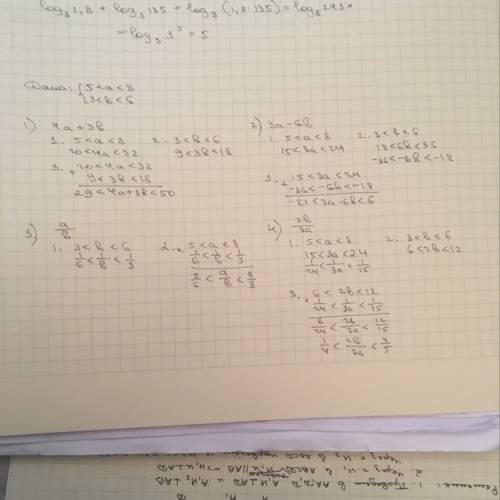 log₃ 1,8 + log₃ 135 = log₃ (1,8 · 135) = log₃ 243 =
= log₃ 3⁵ = 5
Дано: { 5 < a < 8
{ 3 < b < 6
1) 4a + 3b
1. 5 < a < 8
20 < 4a < 32
2. 3 < b < 6
9 < 3b < 18
3. + 20 < 4a < 32
9 < 3b < 18
29 < 4a + 3b < 50
2) 3a - 6b
1. 5 < a < 8
15 < 3a < 24
2. 3 < b < 6
18 < 6b < 36
-36 < -6b < -18
3. + 15 < 3a < 24
-36 < -6b < -18
-21 < 3a - 6b < 6
3) a/b
1. 3 < b < 6
1/6 < 1/b < 1/3
2. × 5 < a < 8
1/6 < 1/b < 1/3
5/6 < a/b < 8/3
4) 2b/3a
1. 5 < a < 8
15 < 3a < 24
1/24 < 1/3a < 1/15
2. 3 < b < 6
6 < 2b < 12
3. × 6 < 2b < 12
1/24 < 1/3a < 1/15
6/24 < 2b/3a < 12/15
1/4 < 2b/3a < 4/5